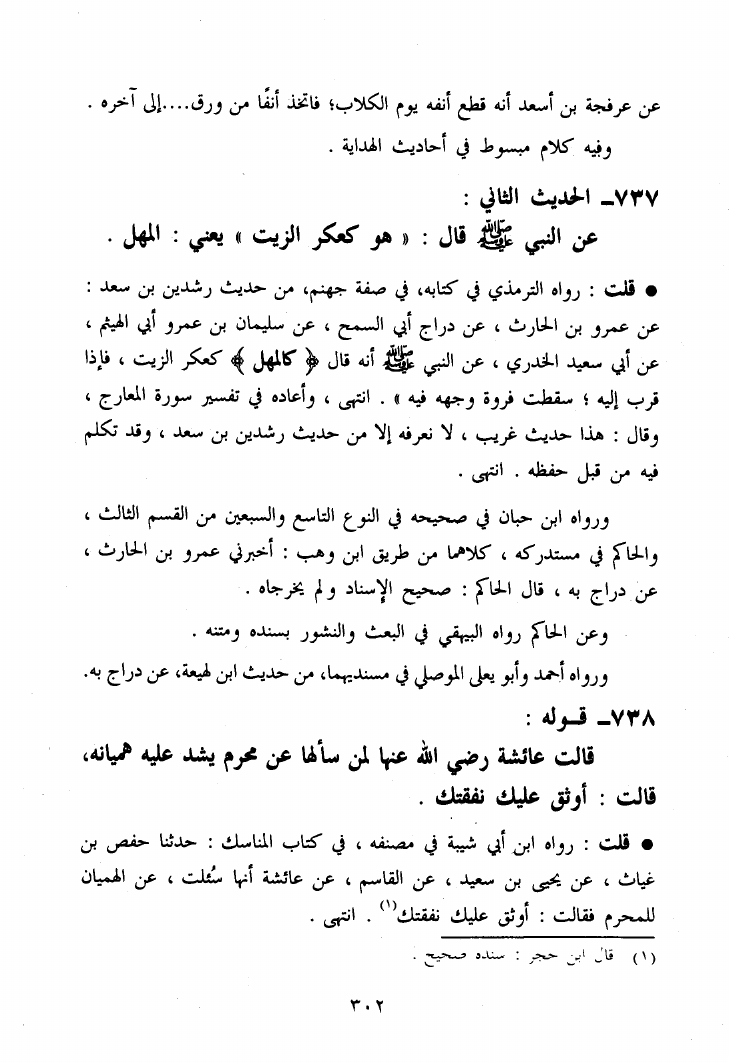 عن عرفجة بن أسعد أنه قطع أنفه يوم الكلاب؛ فاتخذ أنفًا من ورق....إلى آخره .
وفيه كلام مبسوط في أحاديث الهداية .
٧٣٧ـ الحديث الثاني :
عن النبي ﷺ قال : « هو كعكر الزيت » يعني : المهل .
● قلت : رواه الترمذي في كتابه، في صفة جهنم، من حديث رشدين بن سعد :
عن عمرو بن الحارث ، عن دراج أبي السمح ، عن سليمان بن عمرو أبي الهيثم ،
عن أبي سعيد الخدري ، عن النبي ﷺ أنه قال ﴿ كالمهل ﴾ كعكر الزيت ، فإذا
قرب إليه ؛ سقطت فروة وجهه فيه » . انتهى ، وأعاده في تفسير سورة المعارج ،
وقال : هذا حديث غريب ، لا نعرفه إلا من حديث رشدين بن سعد ، وقد تكلم
فيه من قبل حفظه . انتهى .
ورواه ابن حبان في صحيحه في النوع التاسع والسبعين من القسم الثالث ،
والحاكم في مستدركه ، كلاهما من طريق ابن وهب : أخبرني عمرو بن الحارث ،
عن دراج به ، قال الحاكم : صحيح الإسناد ولم يخرجاه .
وعن الحاكم رواه البيهقي في البعث والنشور بسنده ومتنه .
ورواه أحمد وأبو يعلى الموصلي في مسنديهما، من حديث ابن لهيعة، عن دراج به.
٧٣٨ـ قـوله :
قالت عائشة رضي الله عنها لمن سألها عن محرم يشد عليه هميانه،
قالت : أوثق عليك نفقتك .
● قلت : رواه ابن أبي شيبة في مصنفه ، في كتاب المناسك : حدثنا حفص بن
غياث ، عن يحيى بن سعيد ، عن القاسم ، عن عائشة أنها سُئلت ، عن الهميان
للمحرم فقالت : أوثق عليك نفقتك(١) . انتهى .
(١) قال ابن حجر : سنده صحيح .
٣٠٢